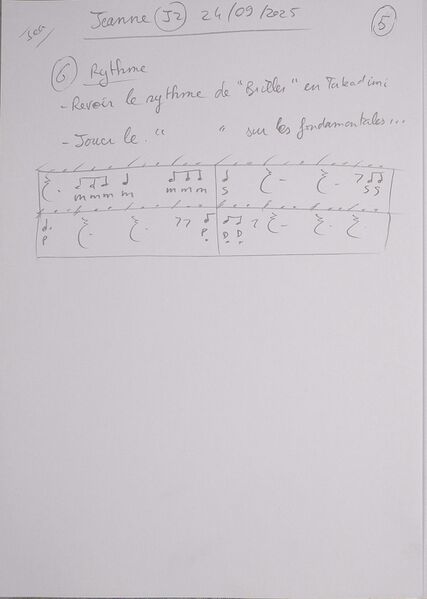 Jeanne (J2) 24/09/2025
5
6 Rythme
- Revoir le rythme de "Butler" en Takadimi
- Jouer le " " sur les fondamentales...
m m m m m m m S S S
P P D D